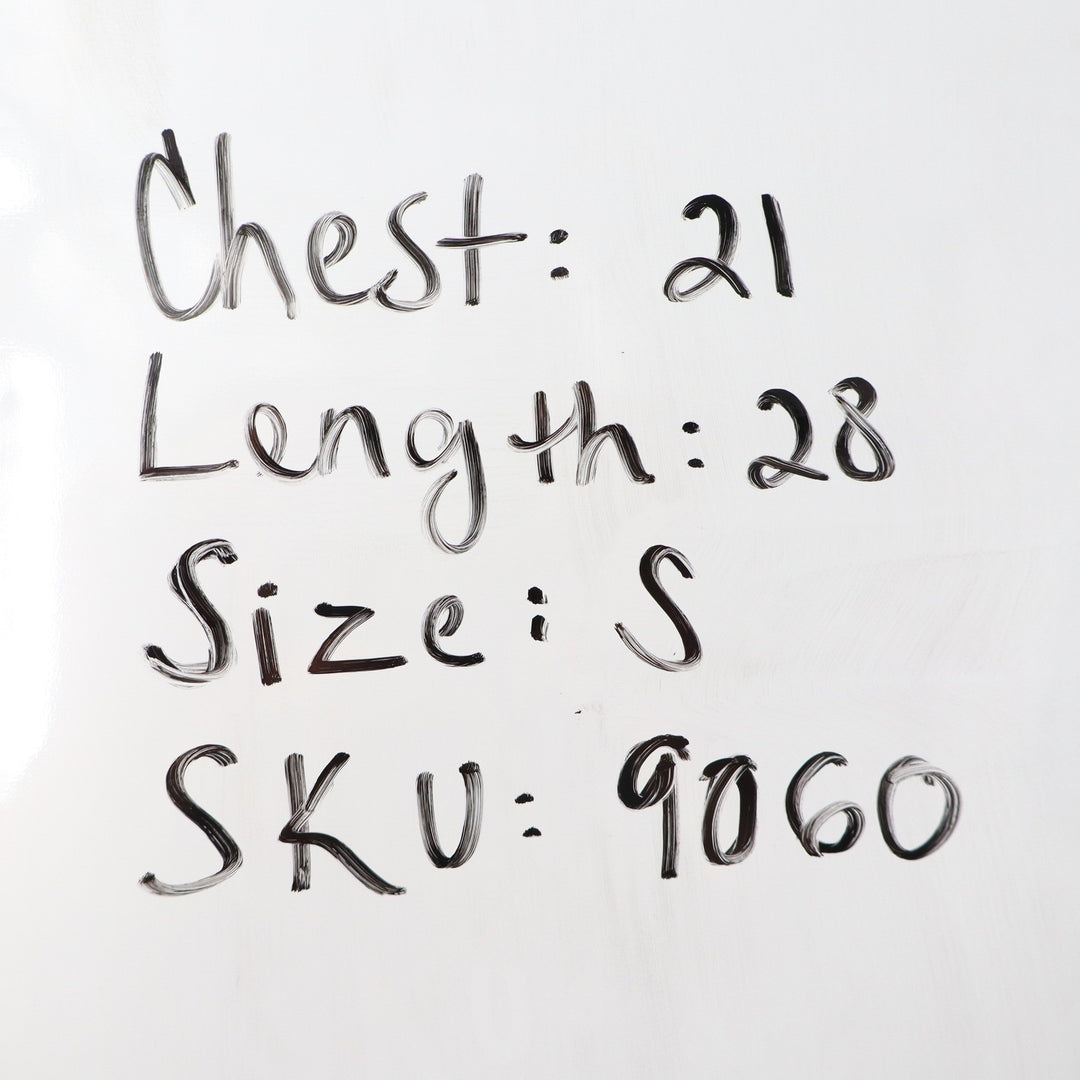 Chest: 21
Length: 28
Size: S
SKU: 9060